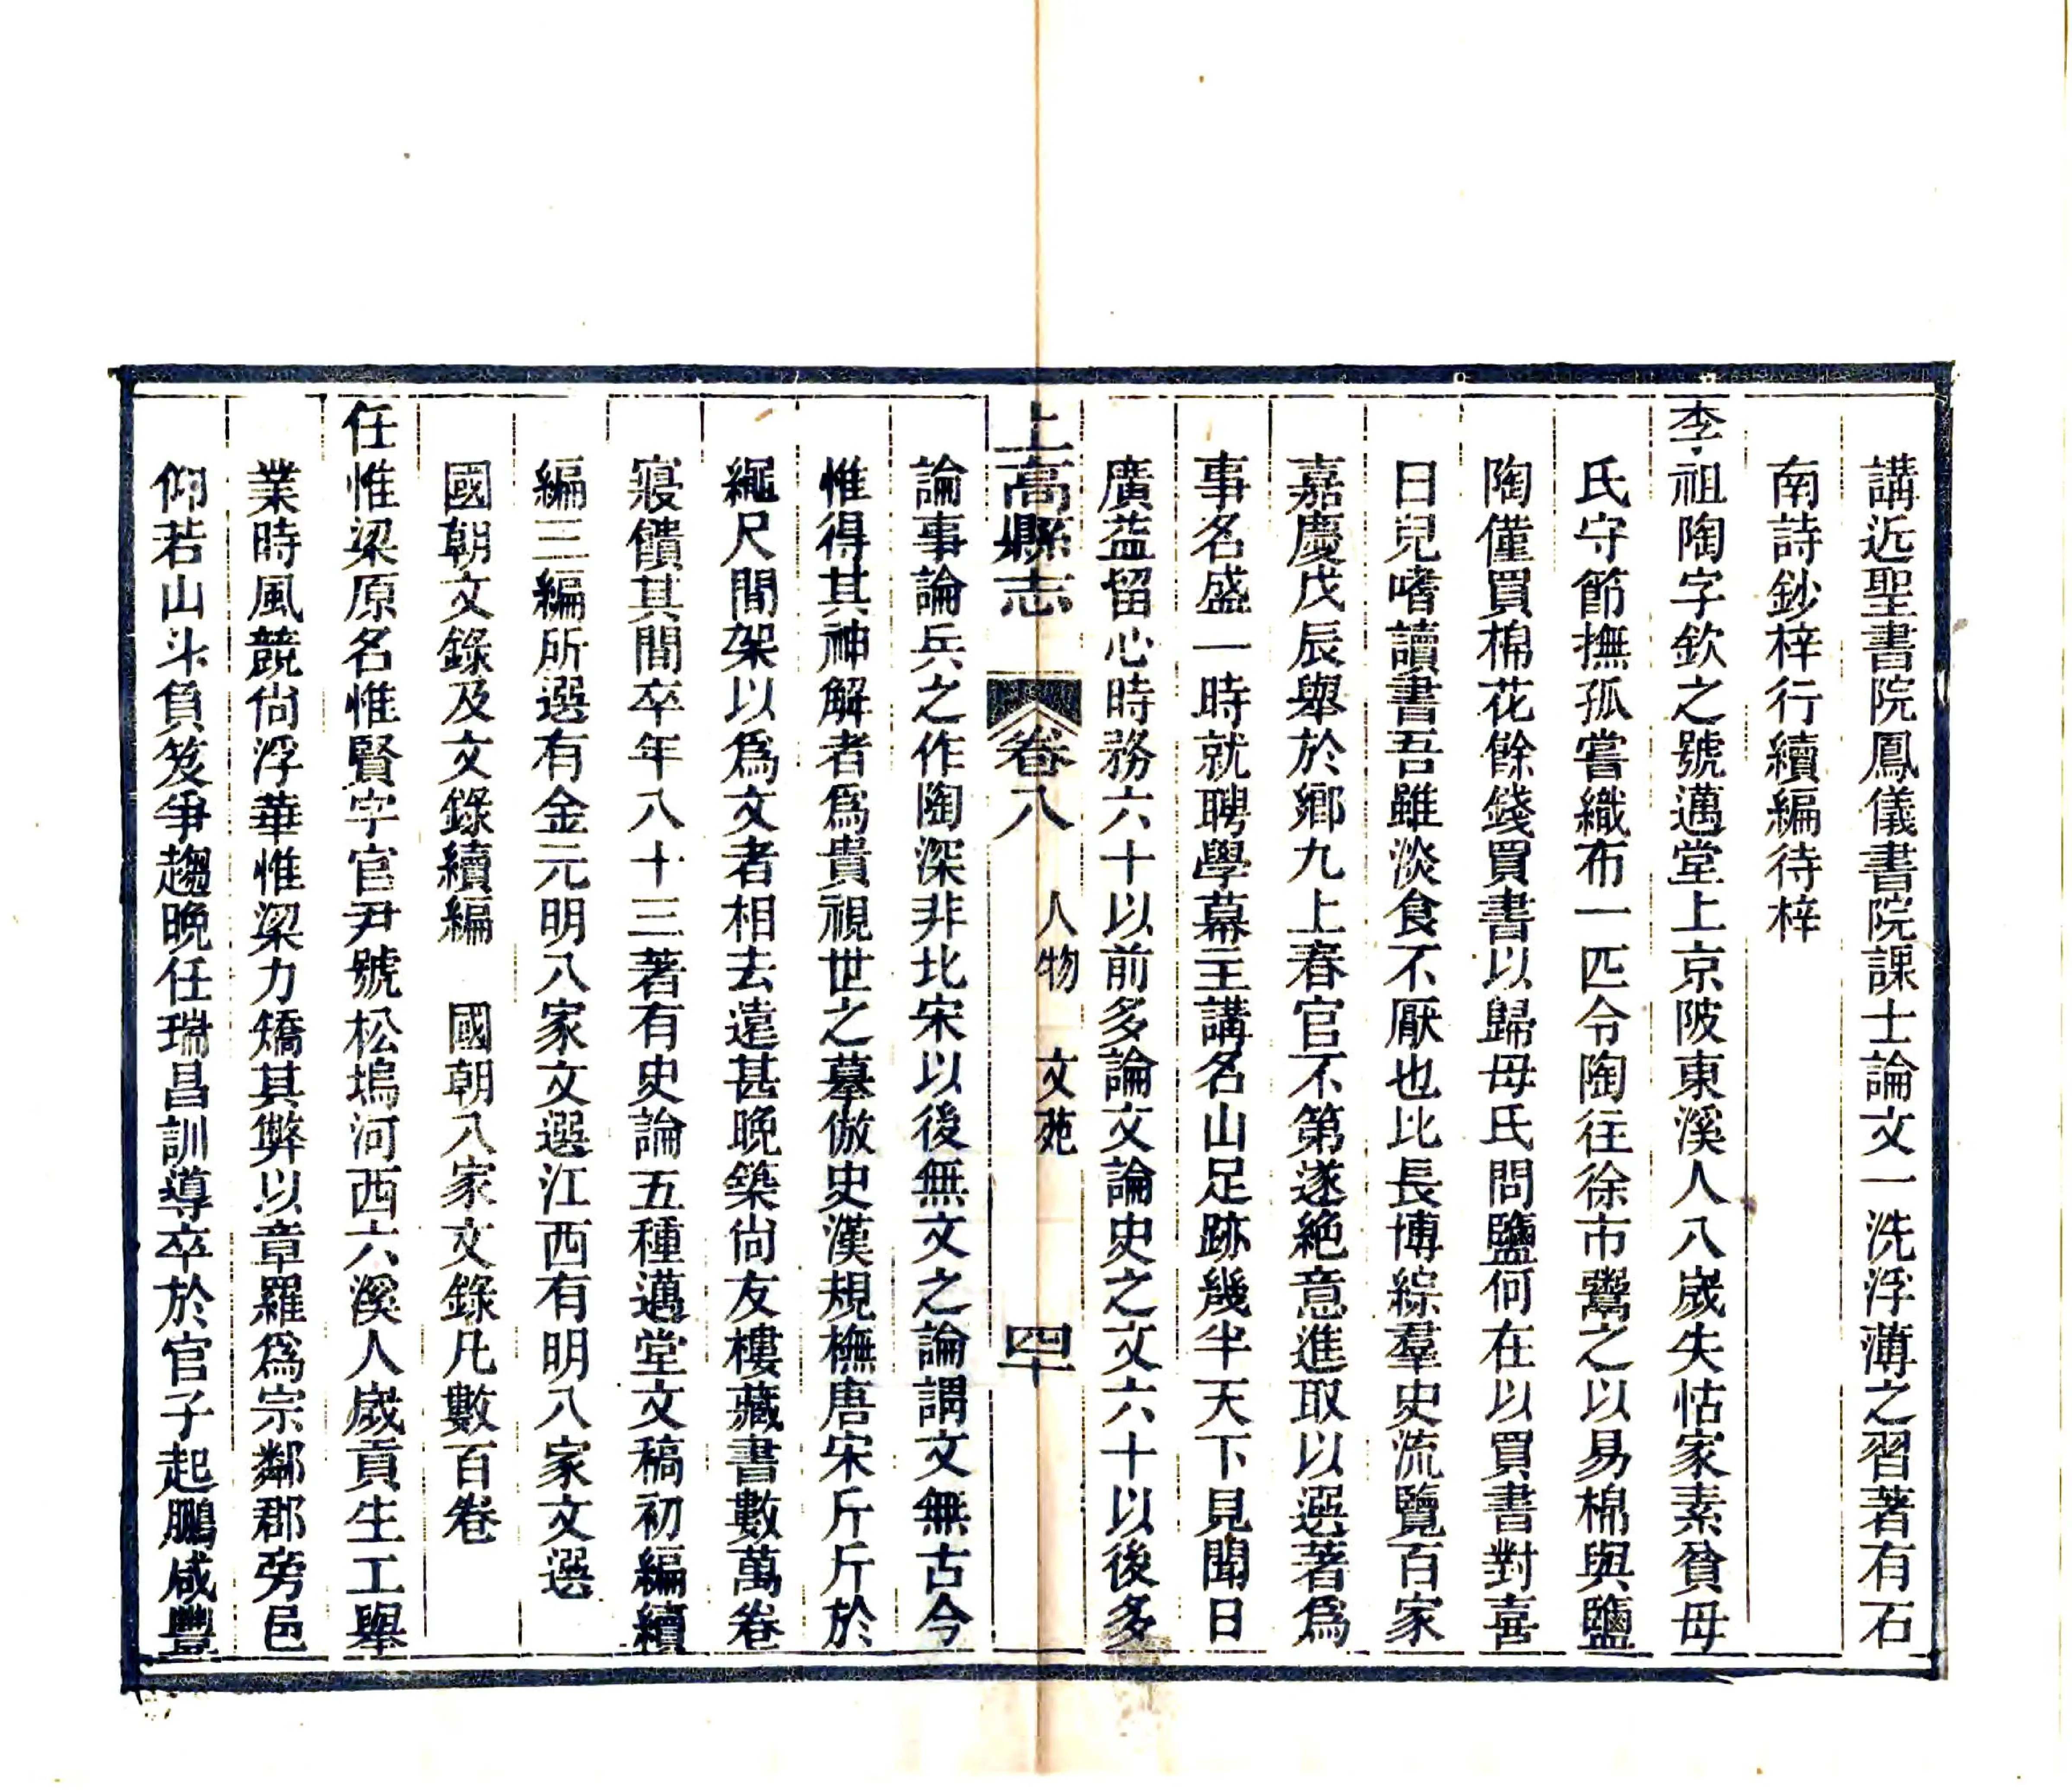 講近聖書院鳳儀書院課士論文一洗浮薄之習著有石
南詩鈔梓行續編待梓
李祖陶字欽之號邁堂上京陂東溪人八歲失怙家素貧母
氏守節撫孤嘗織布一匹令陶往徐市鬻之以易棉與鹽
陶僅買棉花餘錢買書以歸母氏問鹽何在以買書對喜
曰兒嗜讀書吾雖淡食不厭也比長博綜羣史流覽百家
嘉慶戊辰舉於鄉九上春官不第遂絶意進取以選著爲
事名盛一時就聘學幕主講名山足跡幾半天下見聞日
廣益留心時務六十以前多論文論史之文六十以後多
上高縣志 卷八 人物 文苑 四十
論事論兵之作陶深非北宋以後無文之論謂文無古今
惟得其神解者爲貴視世之摹倣史漢規橅唐宋斤斤於
繩尺間架以爲文者相去遠甚晚築尙友樓藏書數萬卷
寢饋其間卒年八十三著有史論五種邁堂文稿初編續
編三編所選有金元明八家文選江西有明八家文選
國朝文錄及文錄續編 國朝八家文錄凡數百卷
任惟梁原名惟賢字官尹號松塢河西六溪人歲貢生工舉
業時風競尙浮華惟梁力矯其弊以章羅爲宗鄰郡旁邑
仰若山斗負笈爭趨晚任瑞昌訓導卒於官子起鵬咸豐